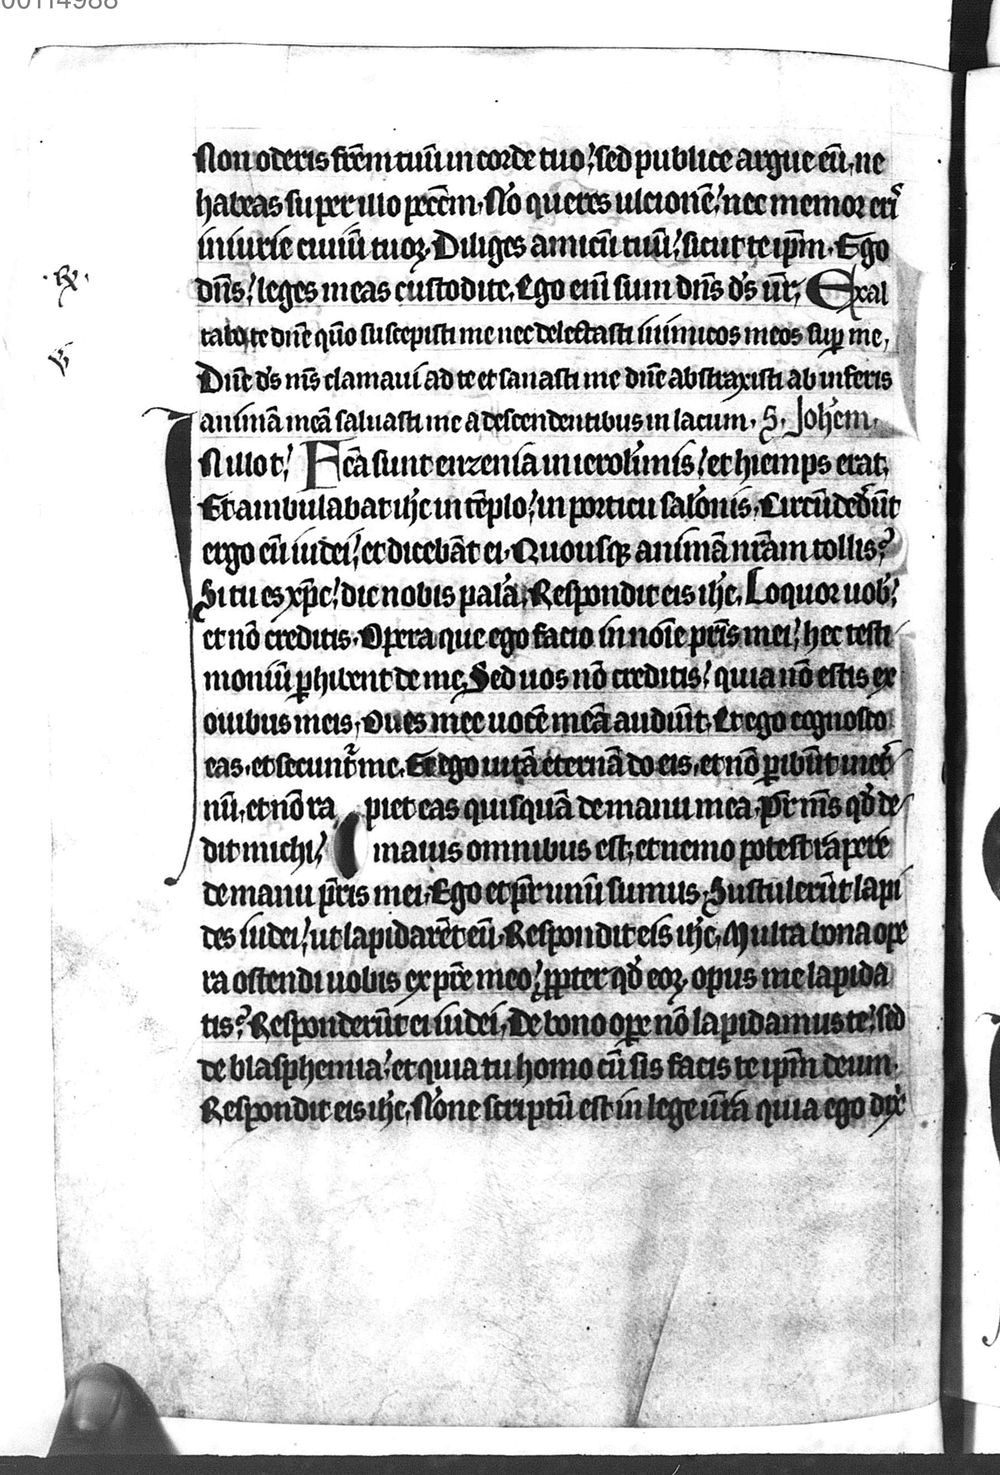 00114988
Non oderis frēm tuū in corde tuo; sed publice argue eū, ne
habeas super illo pccm. Nō queres ulcionē; nec memor eri
iniurie ciuiū tuoꝝ. Diliges amicū tuū; sicut te ipm̄. Ego
dn̄s; leges meas custodite. Ego eni sum dn̄s ds̄ ur̄; Exal
tabo te dn̄e qm̄o suscepisti me nec delectasti inimicos meos sup me,
Dn̄e ds̄ ms̄ clamaui ad te et sanasti me dn̄e abstraxisti ab inferis
animā meā saluasti me a descendentibus in lacum. S. Johem.
·R·
V
N illo t; Fcā sunt enzenia in ierolimis; et hiemps erat,
Et ambulabat ihc in tēplo; in porticu salonis. Circūdedūt
ergo eū iudei; et dicebāt ei. Quousqꝫ animā nrām tollis?
Si tu es xpc; dic nobis palā. Respondit eis ihc. Loquor uob;
et nō creditis. Opera que ego facio in noīe prīs mei; hec testi
moniū phibent de me. Sed uos nō creditis; quia nō estis ex
ouibus meis. Oues mee uocē meā audiūt. Et ego cognosco
eas, et secunt me. Et ego uitā eternā do eis, et nō pibūt inet
nū, et nō ra piet eas quisquā de manu mea. Pr̄ ms̄ qd̄ de
dit michi; maius omnibus est, et nemo potest rapere
de manu pr̄is mei. Ego et pr̄ unū sumus. Sustulerūt lapi
des iudei; ut lapidarēt eū. Respondit eis ihc. Multa bona ope
ra ostendi uobis ex prē meo; ppter qd̄ eoꝝ opus me lapida
tis? Responderūt ei iudei. De bono ope nō lapidamus te; sed
de blasphemia; et quia tu homo cū sis facis te ipm̄ deum.
Respondit eis ihc. Nōne scriptū est in lege urā quia ego dix